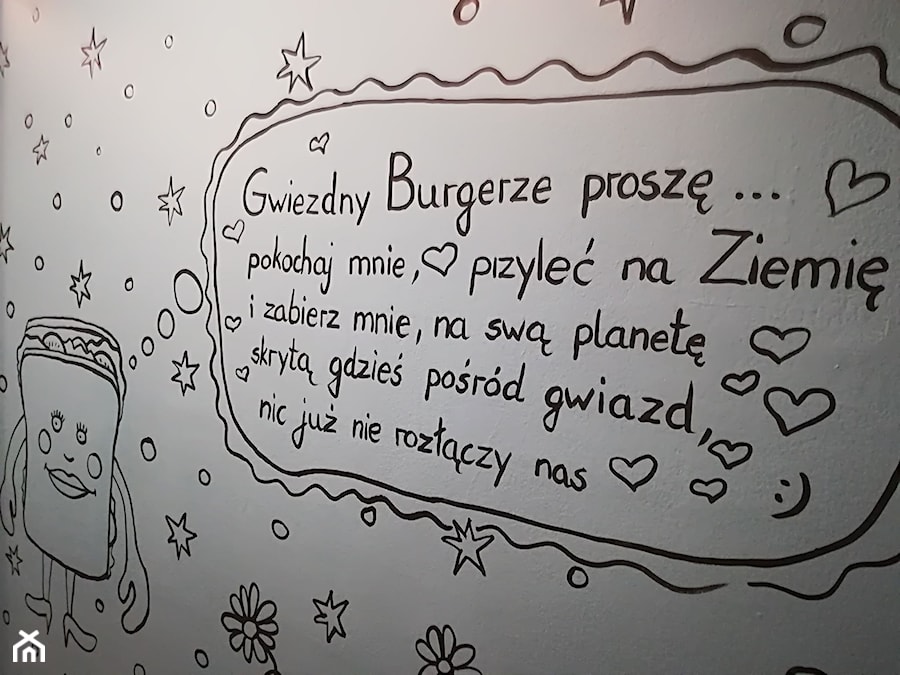 Gwiezdny Burgerze proszę ...
pokochaj mnie, przyleć na Ziemię
i zabierz mnie, na swą planetę
skrytą gdzieś pośród gwiazd,
nic już nie rozłączy nas
:)